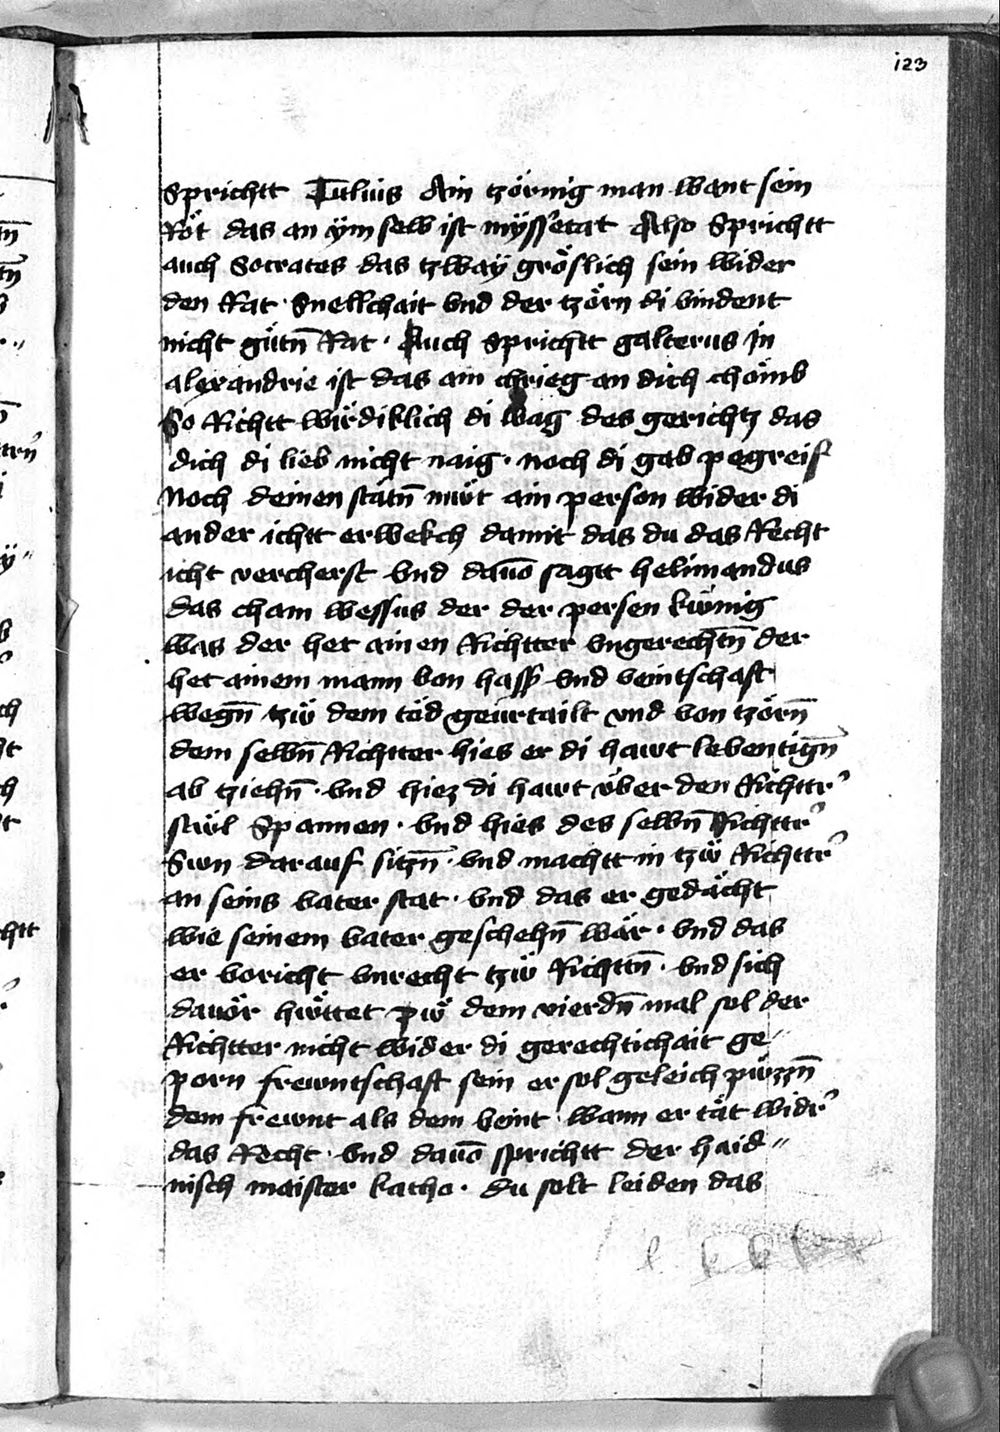 123
Sprichtt Tulius Ain tzörnig man want sein
Röt das an ÿm selb ist mÿssetat Also Sprichtt
auch Socrates das tzwaÿ gröslich sein wider
den Rat · Snellchait vnd der tzörn di vindent
nicht gütn̄ Rat · Auch Sprichtt galterus In
alexandrie ist das ain chrieg an dich chömb
So Richtt wirdiklich di wag des gerichtz das
dich di lieb nicht naig · noch di gab pegreif
Noch deinen stätn̄ müt ain person wider di
ander ichtt erwekch damit das du das Recht
icht vercherst vnd dauō sagtt helimandus
das cham wessus der der persen künig
was der het ainen Richtter vngerechtn̄ der
het ainem mann von hass vnd veintschaft
wegn̄ tzü dem töd geürtailt vnd von tzörn̄
dem selbn̄ Richtter hies er di hawt lebentign̄
ab tziehn̄ · vnd hiez di hawt über den Richttr̛
stül Spannen · vnd hies des selbn̄ Richttr̛
Sun darauf sitzn̄ · vnd machtt in tzü Richttr̛
an seins vater stat · vnd das er gedächt
wie seinem vater geschehn̄ wär · vnd das
er voricht vnrecht tzü Richttn̄ · vnd sich
dauör hüttet pü dem vierdn̄ mal sol der
Richtter nicht wider di gerechtichait ge〃
porn frewntschaft sein er sol geleich püzzn̄
dem frewnt als dem veint wann er tät widr̛
das Recht · vnd dauō sprichtt der haid〃
nisch maister katho · du solt leiden das